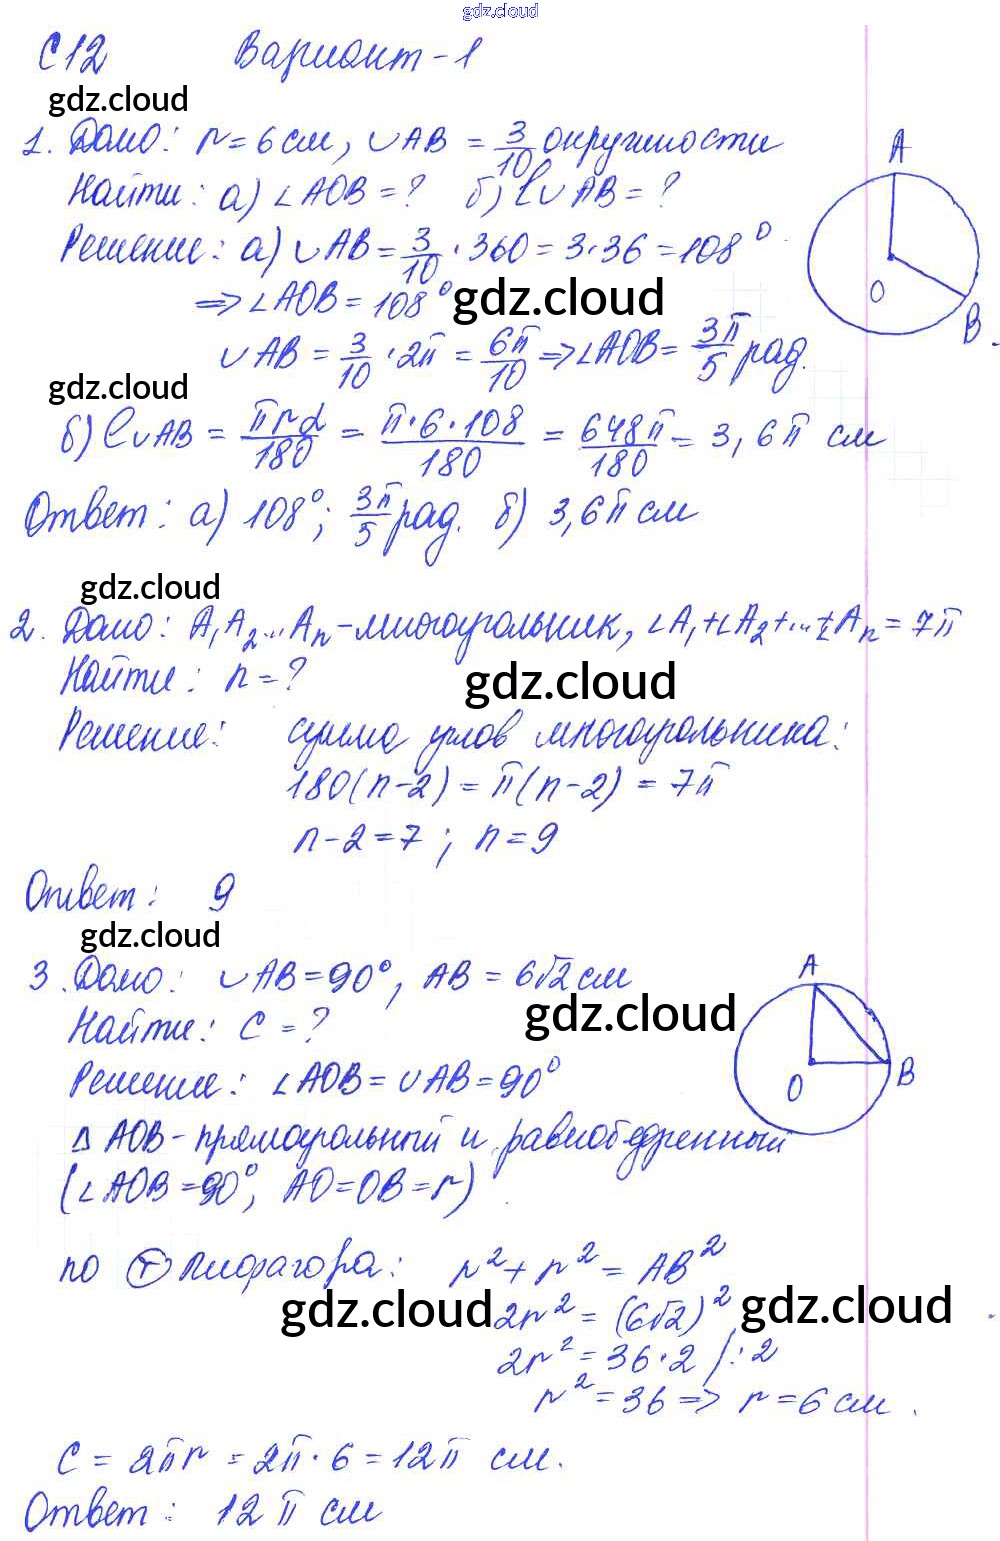 gdz.cloud
С12 Вариант-1
gdz.cloud
1. Дано: r = 6 см, ∪AB = 3/10 окружности
Найти: а) ∠AOB = ? б) l∪AB = ?
A
Решение: а) ∪AB = 3/10 · 360 = 3·36 = 108°
⇒ ∠AOB = 108°
gdz.cloud
O
B
∪AB = 3/10 · 2π = 6π/10 ⇒ ∠AOB = 3π/5 рад.
gdz.cloud
б) l∪AB = πrα/180 = π·6·108/180 = 648π/180 = 3,6π см
Ответ: а) 108°; 3π/5 рад. б) 3,6π см
gdz.cloud
2. Дано: A₁A₂...Aₙ-многоугольник, ∠A₁+∠A₂+...+∠Aₙ = 7π
Найти: n = ?
gdz.cloud
Решение: сумма углов многоугольника:
180(n-2) = π(n-2) = 7π
n-2 = 7; n = 9
Ответ: 9
gdz.cloud
3. Дано: ∪AB = 90°, AB = 6√2 см
A
gdz.cloud
Найти: C = ?
Решение: ∠AOB = ∪AB = 90°
O
B
△AOB-прямоугольный и равнобедренный
(∠AOB = 90°, AO = OB = r)
по Т Пифагора: r² + r² = AB²
gdz.cloud
2r² = (6√2)²
gdz.cloud
2r² = 36·2 /:2
r² = 36 ⇒ r = 6 см.
C = 2πr = 2π·6 = 12π см.
Ответ: 12π см